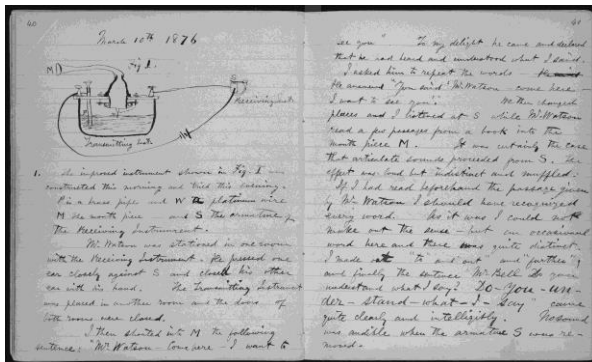 40
March 10th 1876
Fig 1.
MD
Receiving Inst.
Transmitting Inst.
1. The improved instrument shown in Fig. I was
constructed this morning and tried this evening.
P is a brass pipe and W the platinum wire
M the mouth piece and S the armature of
the Receiving Instrument.
Mr. Watson was stationed in one room
with the Receiving Instrument. He pressed one
ear closely against S and closed his other
ear with his hand. The Transmitting Instrument
was placed in another room and the doors of
both rooms were closed.
I then shouted into M the following
sentence: "Mr. Watson - Come here - I want to
41
see you". To my delight he came and declared
that he had heard and understood what I said.
I asked him to repeat the words -
He answered "You said 'Mr. Watson - come here -
I want to see you'." We then changed
places and I listened at S while Mr. Watson
read a few passages from a book into the
mouth piece M. It was certainly the case
that articulate sounds proceeded from S. The
effect was loud but indistinct and muffled.
If I had read beforehand the passage given
by Mr. Watson I should have recognized
every word. As it was I could not
make out the sense - but an occasional
word here and there was quite distinct.
I made out "to" and "out" and "further";
and finally the sentence "Mr. Bell Do you
understand what I say? Do-you-un-
der-stand-what-I-say" came
quite clearly and intelligibly. No sound
was audible when the armature S was re-
moved.